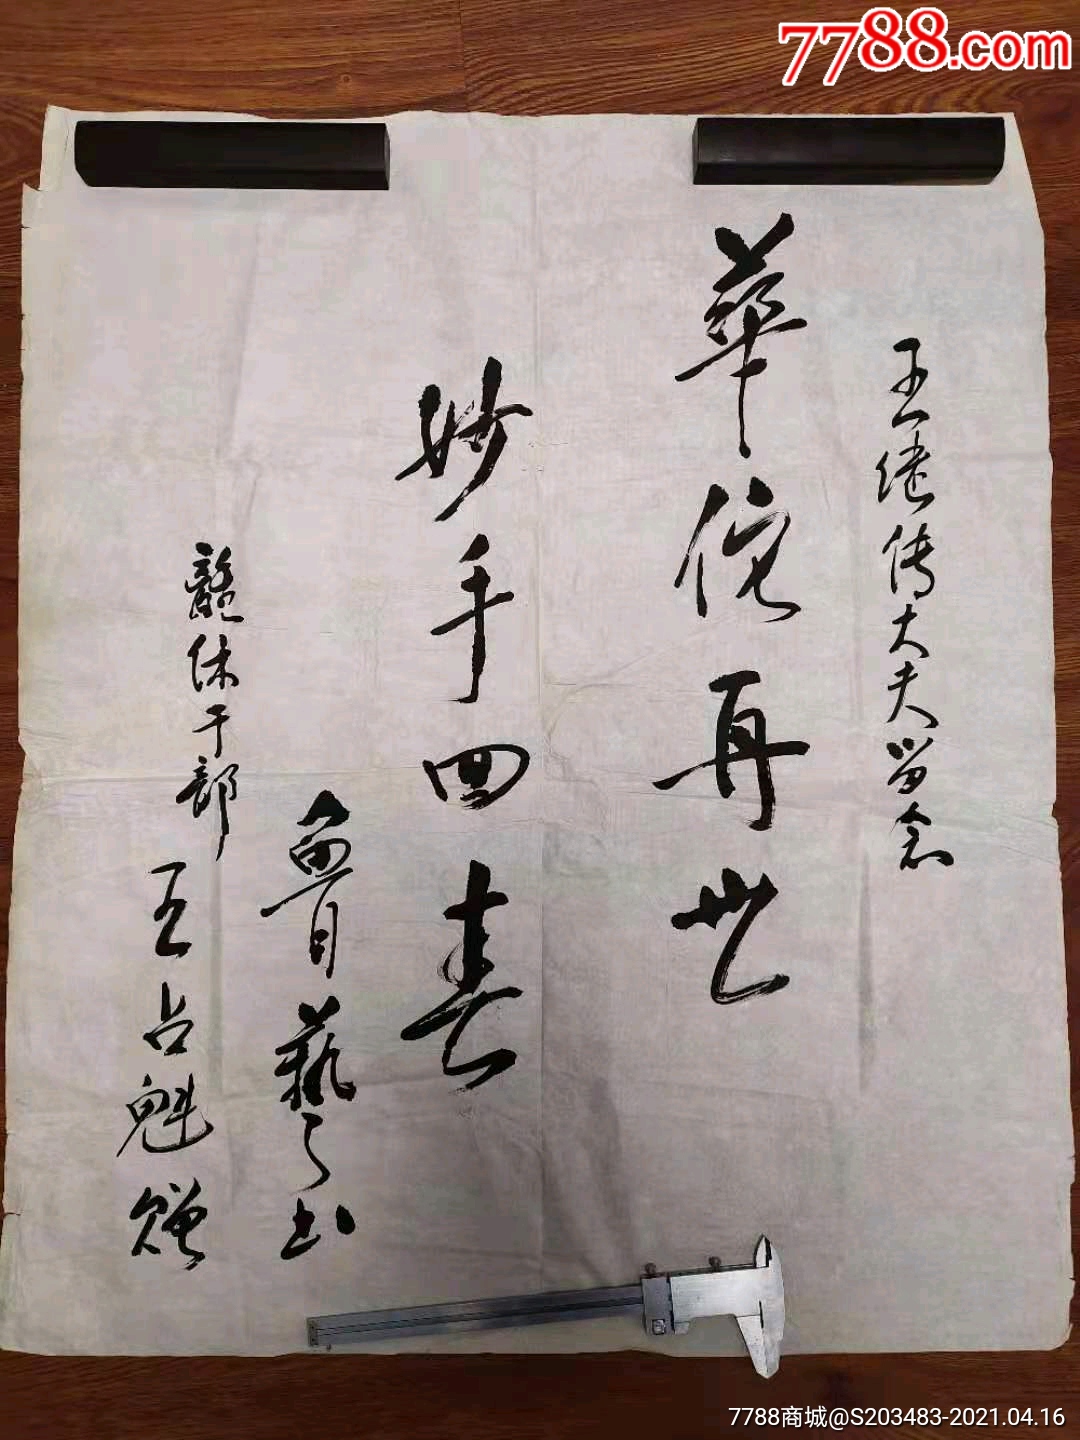 7788.com
王继传大夫留念
華佗再世
妙手回春
魯藝之书
离休干部
王占魁赠
7788商城@S203483-2021.04.16